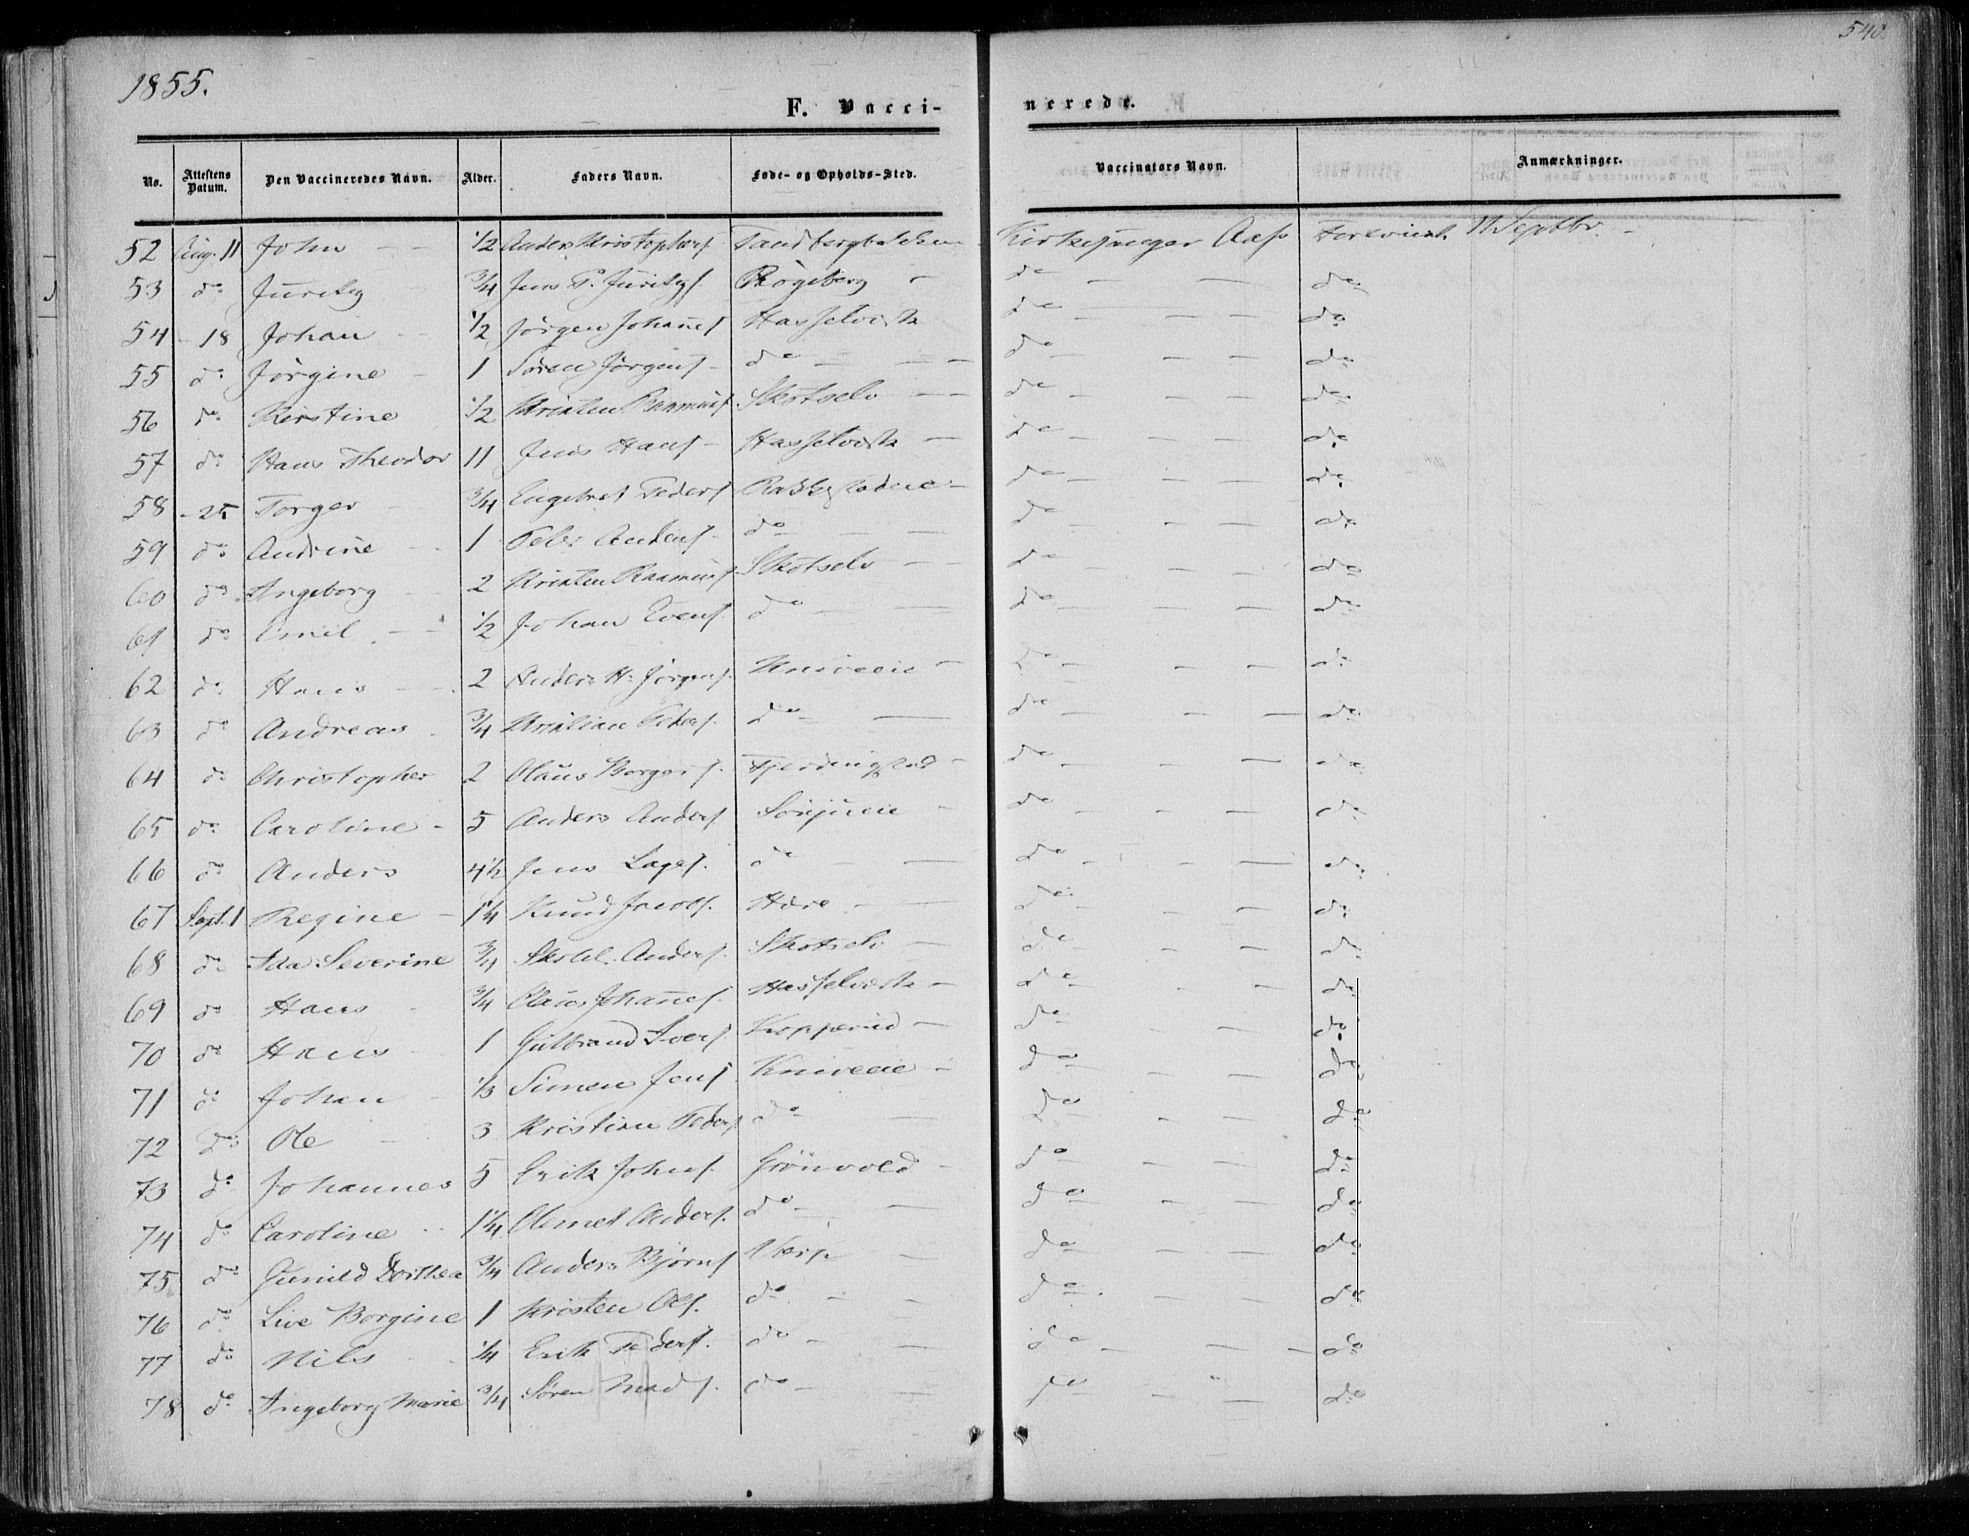 540
1855.
F. Vacci-
nerede.
No. Attestens Datum. Den Vaccineredes Navn. Alder. Faders Navn. Føde- og Opholds-Sted. Vaccinators Navn. Anmærkninger.
52 Aug. 11 John 1/2 Anders Kristophers. Kirkesanger Aas Foreviist 11 Septbr.
53 do 3/4 Jens P. Røgeberg do do
54 - 18 Johan 1/2 Jörgen Johans Hasselvik do do
55 do Jörgine 1 Sören Jörgens do do do
56 do Kerstine 1/2 Kristen Rasmuss Skotselv do do
57 do Hans Theodor 11 Jens Hans Hasselvik do do
58 - 25 Torger 3/4 Engebret Peders do do
59 do Andrine 1 Peder Anders do do do
60 do Ingeborg 2 Kristen Rasmuss Skotselv do do
61 do Emil 1/2 Johan Evens. do do do
62 do Hans 2 Anders H. Jörgens. Kniveeie do do
63 do Andreas 3/4 Kristian Peders. do do do
64 do Christopher 2 Olaus Borgers. Fjerdingstad do do
65 do Caroline 5 Anders Anders do do
66 do Anders 4 1/2 Jens Lages. do do do
67 Sept. 1 Regine 1 1/4 Knud Jacobs. Hære do do
68 do Ida Severine 3/4 Anders. Skotselv do do
69 do Hans 3/4 Olaus Johannes. Hasselvik do do
70 do Hans 1 Gulbrand Ivers Kopperud do do
71 do Johan 1/3 Simen Jens Kniveeie do do
72 do Ole 3 Kristian Peders do do do
73 do Johannes 5 Erik Johns. Grönvold do do
74 do Caroline 1 1/4 Clemet Anders. do do do
75 do Gunild Dorthea 3/4 Anders Bjørns Verp do do
76 do Live Borgine 1 Kristen Ols. do do do
77 do Nils 1/4 Erik Peders. do do do
78 do Ingeborg Marie 3/4 Søren Mads. do do do